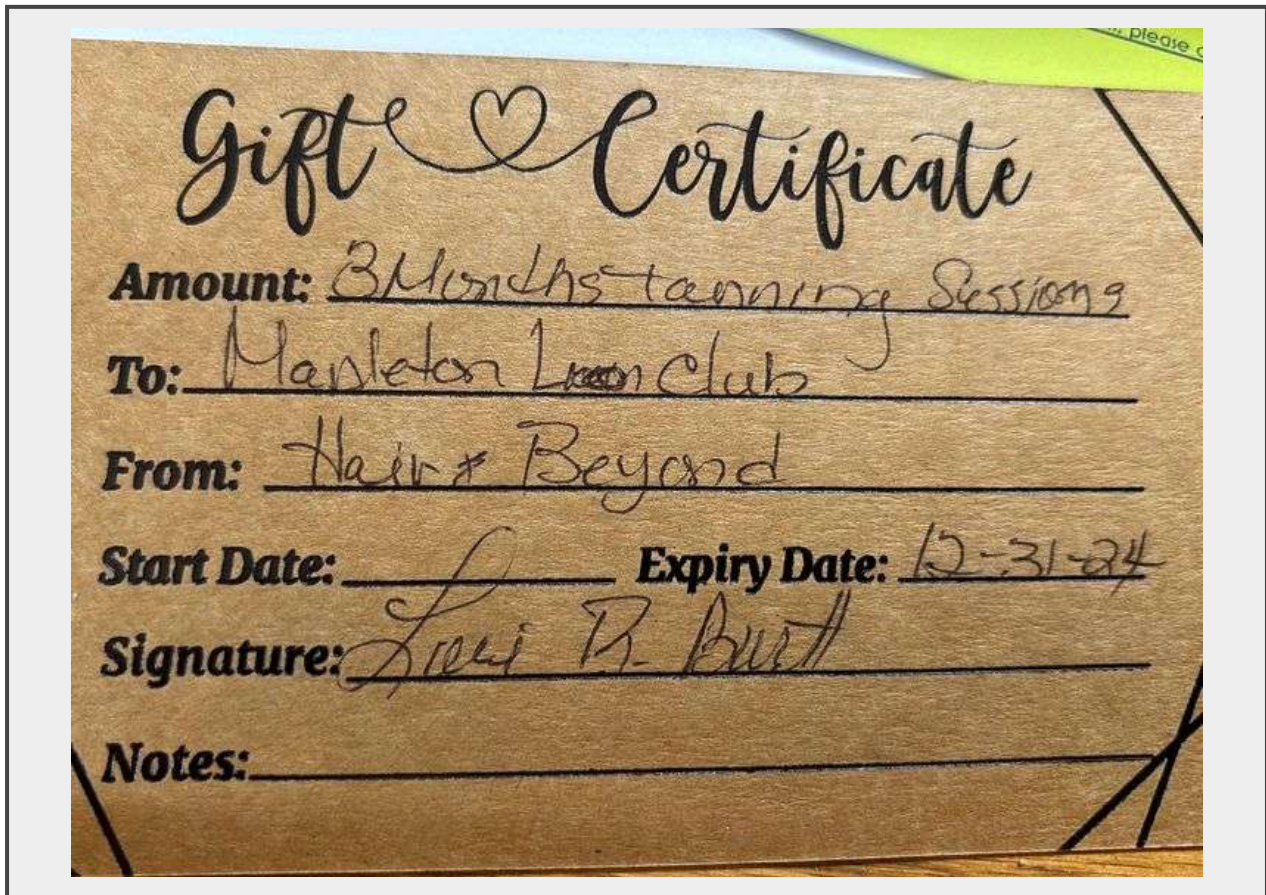 please
Gift Certificate
Amount: 3 Months tanning Sessions
To: Mapleton Club
From: Hair & Beyond
Start Date: Expiry Date: 12-31-24
Signature: R.
Notes: